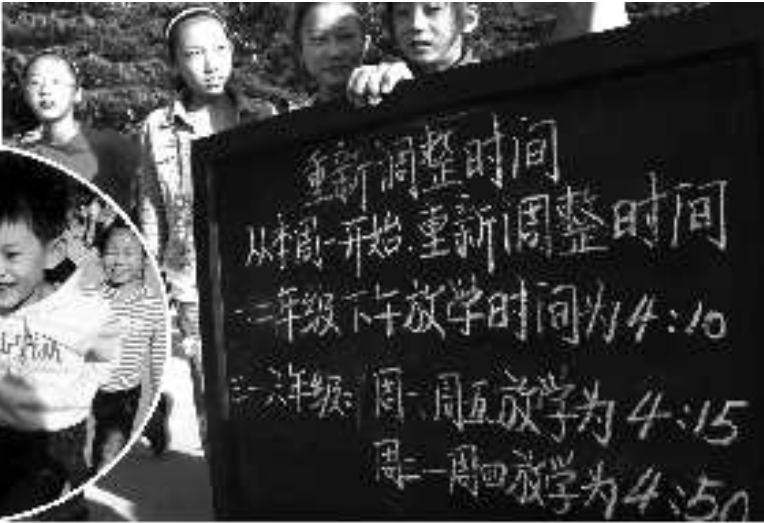 重新调整时间
从本周一开始.重新调整时间
一二年级下午放学时间为4:10
三一六年级:周一、周五放学为4:15
周二一周四放学为4:50